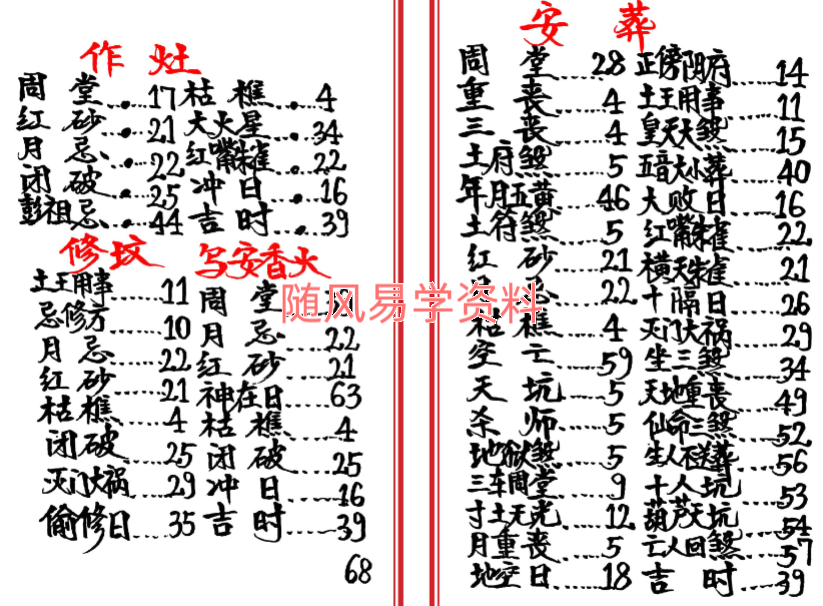 作灶
周堂……17 枯樵……4
红砂……21 大火星……34
月忌……22 红嘴朱雀……22
闭破……25 冲日……16
彭祖忌……44 吉时……39
修坟
土王用事……11
忌修方……10
月忌……22
红砂……21
枯樵……4
闭破……25
灭门大祸……29
偷修日……35
写安香火
周堂
月忌……22
红砂……21
神在日……63
枯樵……4
闭破……25
冲日……16
吉时……39
68
随风易学资料
安葬
周堂……28
重丧……4
三丧……4
土府煞……5
年月五黄……46
土符煞……5
红砂……21
忌……22
枯樵……4
空亡……59
天坑……5
杀师……5
地狱煞……5
三车周堂……9
寸土无光……12
月重丧……5
地空日……18
正傍阴府……14
土王用事……11
皇天大煞……15
五音大小葬……40
大败日……16
红嘴朱雀……22
横天朱雀……21
十隔日……26
灭门大祸……29
坐三煞……34
天地重丧……49
仙命三煞……52
生人不送葬……56
十人坑……53
葫芦天坑……54
亡人回煞……57
吉时……39